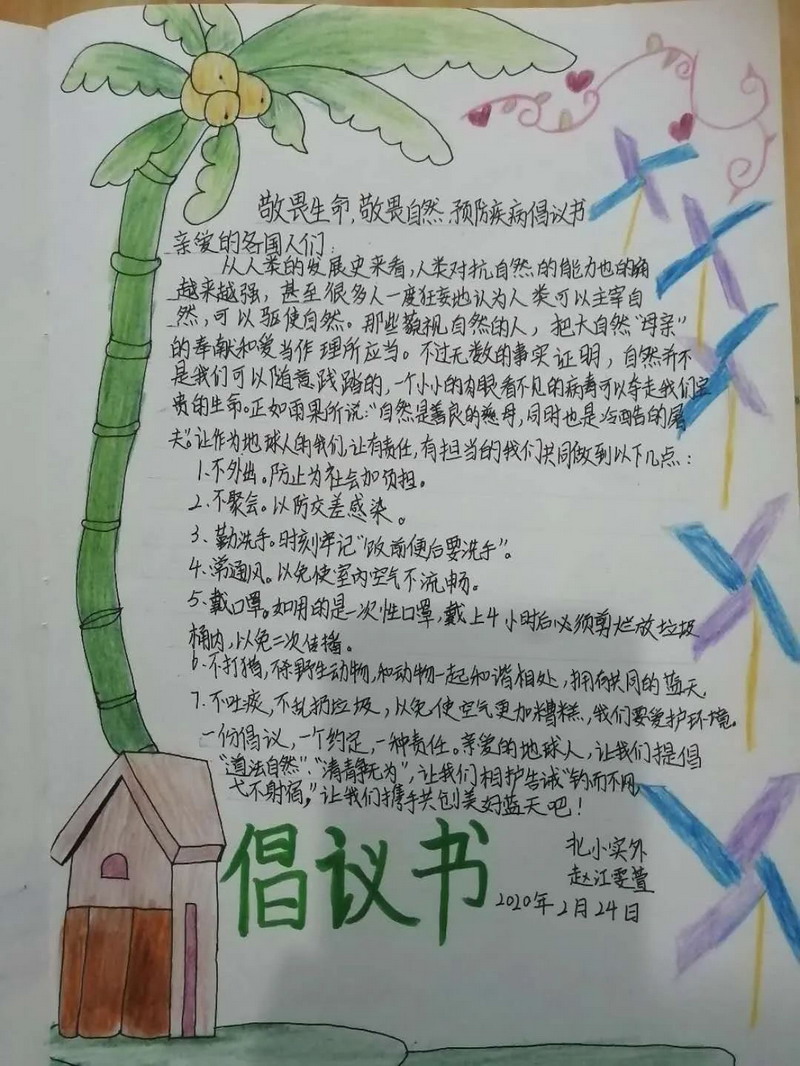 敬畏生命,敬畏自然,预防疾病倡议书
亲爱的各国人们:
从人类的发展史来看,人类对抗自然的能力也的确
越来越强,甚至很多人一度狂妄地认为人类可以主宰自
然,可以驱使自然。那些藐视自然的人,把大自然“母亲”
的奉献和爱当作理所应当。不过无数的事实证明,自然并不
是我们可以随意践踏的,一个小小的肉眼看不见的病毒可以夺走我们宝
贵的生命。正如雨果所说:“自然是善良的慈母,同时也是冷酷的屠
夫”。让作为地球人的我们,让有责任,有担当的我们共同做到以下几点:
1.不外出。防止为社会加负担。
2.不聚会。以防交差感染。
3、勤洗手。时刻牢记“饭前便后要洗手”。
4.常通风。以免使室内空气不流畅。
5、戴口罩。如用的是一次性口罩,戴上4小时后必须剪烂放垃圾
桶内,以免二次传播。
6.不打猎,不食野生动物,和动物一起和谐相处,拥有共同的蓝天
7.不吐痰,不乱扔垃圾,以免使空气更加糟糕,我们要爱护环境。
一份倡议,一个约定,一种责任。亲爱的地球人,让我们提倡
“道法自然”、“清静无为”,让我们相护告诫“钓而不网,
弋不射宿,”让我们携手共创美好蓝天吧!
北小实外
赵江雯萱
2020年2月24日
倡议书